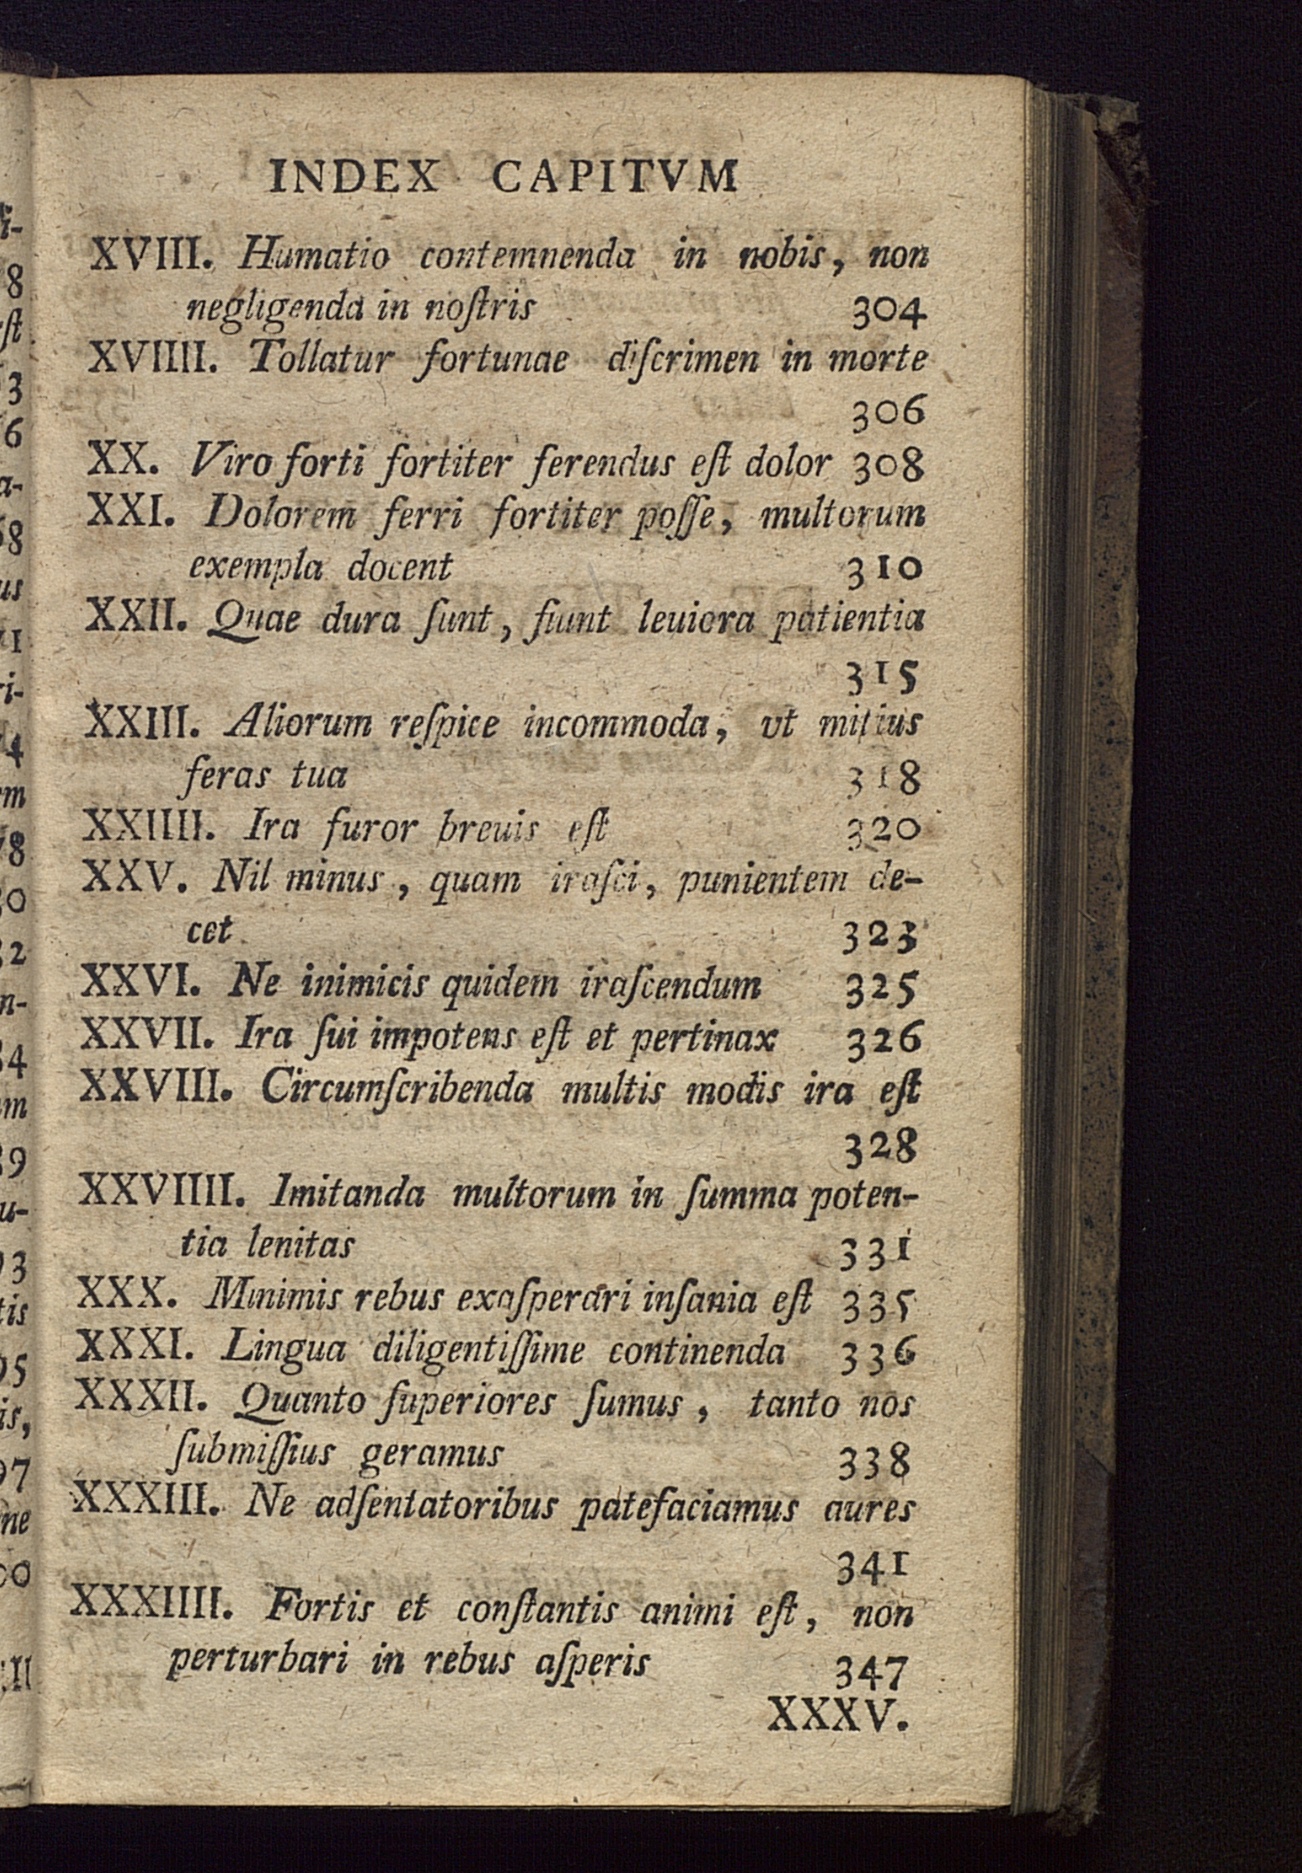 INDEX CAPITVM
XVIII. Humatio contemnenda in nobis, non
negligenda in noſtris 304
XVIIII. Tollatur fortunae diſcrimen in morte
306
XX. Viro forti fortiter ferendus eſt dolor 308
XXI. Dolorem ferri fortiter poſſe, multorum
exempla docent 310
XXII. Quae dura ſunt, fiunt leuiora patientia
315
XXIII. Aliorum reſpice incommoda, vt mitius
feras tua 318
XXIIII. Ira furor breuis eſt 320
XXV. Nil minus, quam iraſci, punientem de-
cet 323
XXVI. Ne inimicis quidem iraſcendum 325
XXVII. Ira ſui impotens eſt et pertinax 326
XXVIII. Circumſcribenda multis modis ira eſt
328
XXVIIII. Imitanda multorum in ſumma poten-
tia lenitas 331
XXX. Minimis rebus exaſperari inſania eſt 335
XXXI. Lingua diligentiſſime continenda 336
XXXII. Quanto ſuperiores ſumus, tanto nos
ſubmiſſius geramus 338
XXXIII. Ne adſentatoribus patefaciamus aures
341
XXXIIII. Fortis et conſtantis animi eſt, non
perturbari in rebus aſperis 347
XXXV.